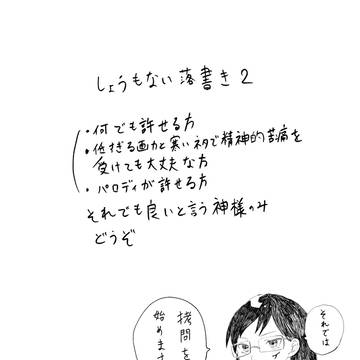 しょうもない落書き2
・何でも許せる方
・低すぎる画力と寒いネタで精神的苦痛を
受けても大丈夫な方
・パロディが許せる方
それでも良いと言う神様のみ
どうぞ
それでは
拷問を
始めます